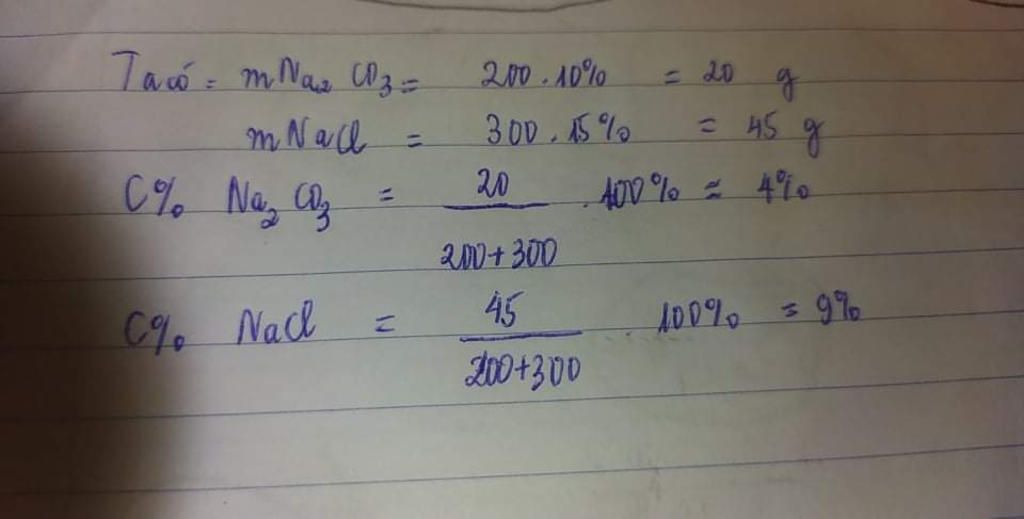 Ta có: mNa2CO3 = 200.10% = 20 g
mNaCl = 300.15% = 45 g
C% Na2CO3 = 20 .100% = 4%
200+300
C% NaCl = 45 .100% = 9%
200+300